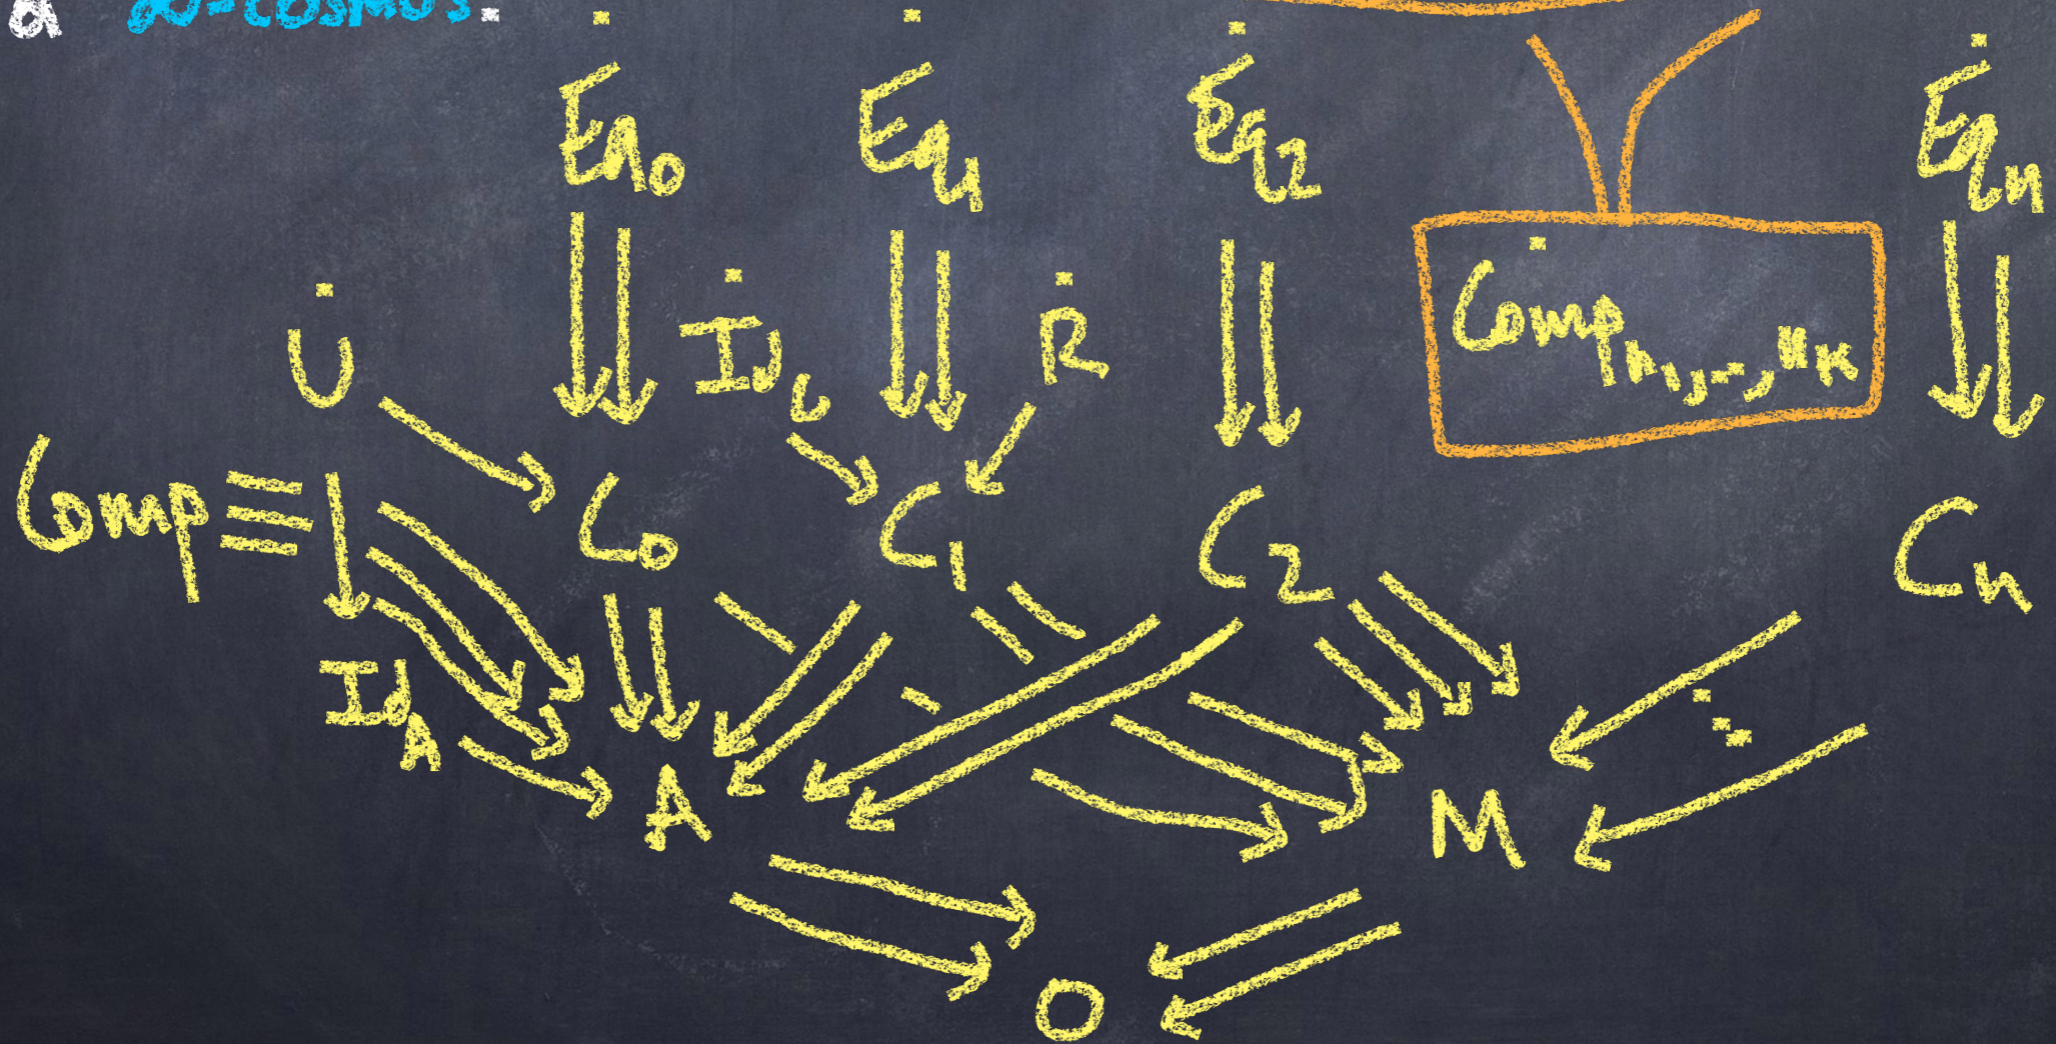 ∞-cosmos.
Eq₀ Eq₁ Eq₂ Eqₙ
U Id_U R Comp_{n₁,...,n_k}
Comp C₀ C₁ C₂ Cₙ
Id_A
A M
O